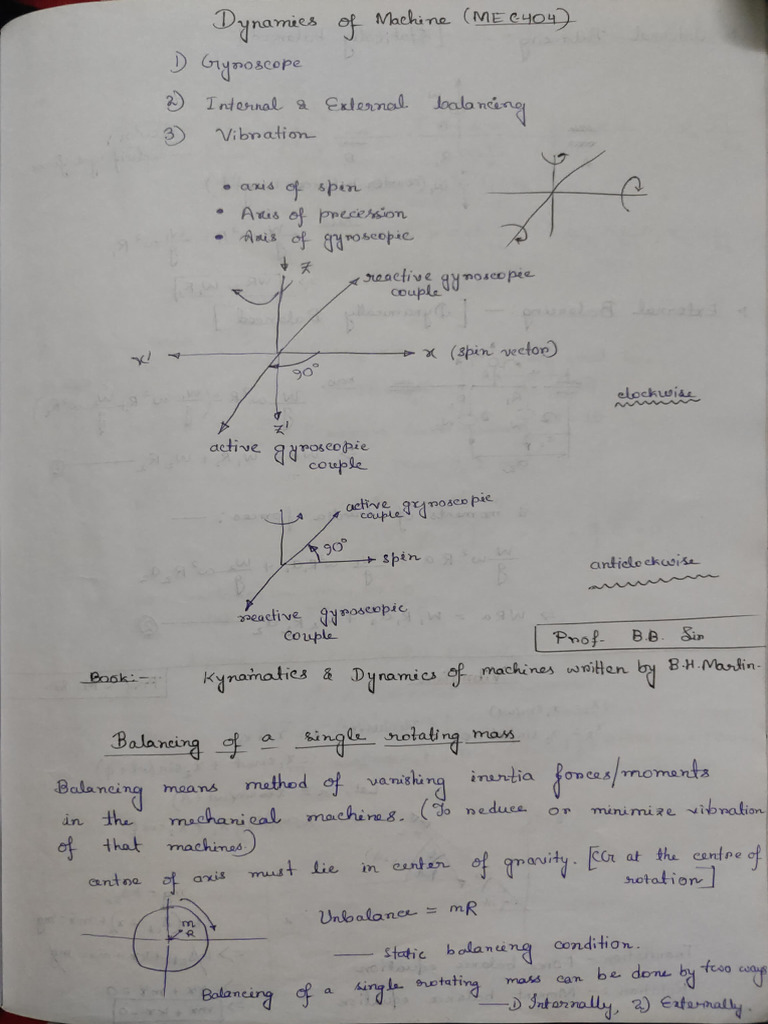 Dynamics of Machine (MEC404)
1) Gyroscope
2) Internal & External balancing
3) Vibration
• axis of spin
• Axis of precession
• Axis of gyroscopic
Z
reactive gyroscopic
couple
x'
x (spin vector)
90°
clockwise
Z'
active gyroscopic
couple
active gryoscopic
couple
90°
spin
anticlockwise
reactive gyroscopic
couple
Prof. B.B. Sir
Book:- Kynamatics & Dynamics of machines written by B.H. Martin.
Balancing of a single rotating mass
Balancing means method of vanishing inertia forces/moments
in the mechanical machines. (To reduce or minimize vibration
of that machines.)
centre of axis must lie in center of gravity. [CG at the centre of
rotation]
m
R
Unbalance = mR
— static balancing condition.
Balancing of a single rotating mass can be done by two ways
— 1) Internally, 2) Externally.